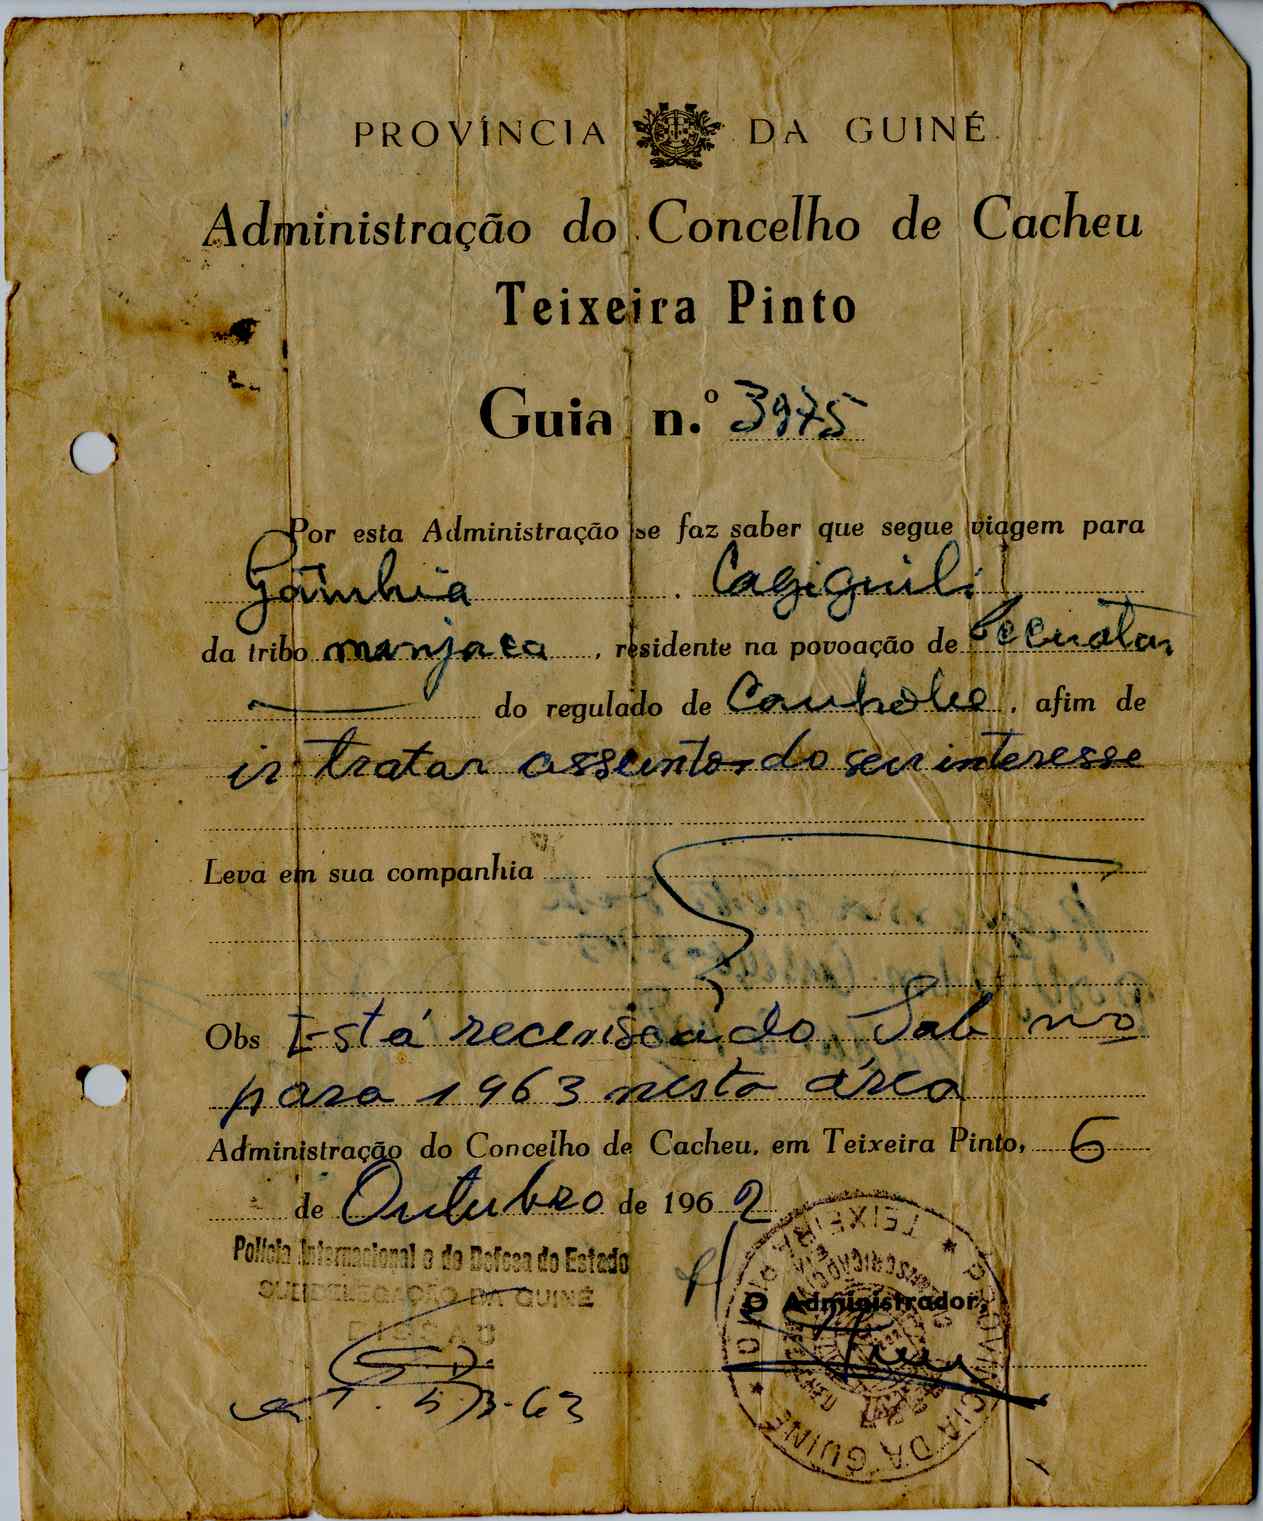 PROVÍNCIA DA GUINÉ
Administração do Concelho de Cacheu
Teixeira Pinto
Guia n.º 3975
Por esta Administração se faz saber que segue viagem para
Gâmbia Cagiguili
da tribo manjaca, residente na povoação de
do regulado de, afim de
ir tratar assunto do seu interesse
Leva em sua companhia
Obs Está recenseado. Sab nº
para 1963 nesta área
Administração do Concelho de Cacheu, em Teixeira Pinto, 6
de Outubro de 1962
Polícia Internacional e de Defesa do Estado
SUBDELEGAÇÃO DA GUINÉ
BISSAU
O Administrador,
63
PROVINCIA DA GUINÉ
TEIXEIRA PINTO